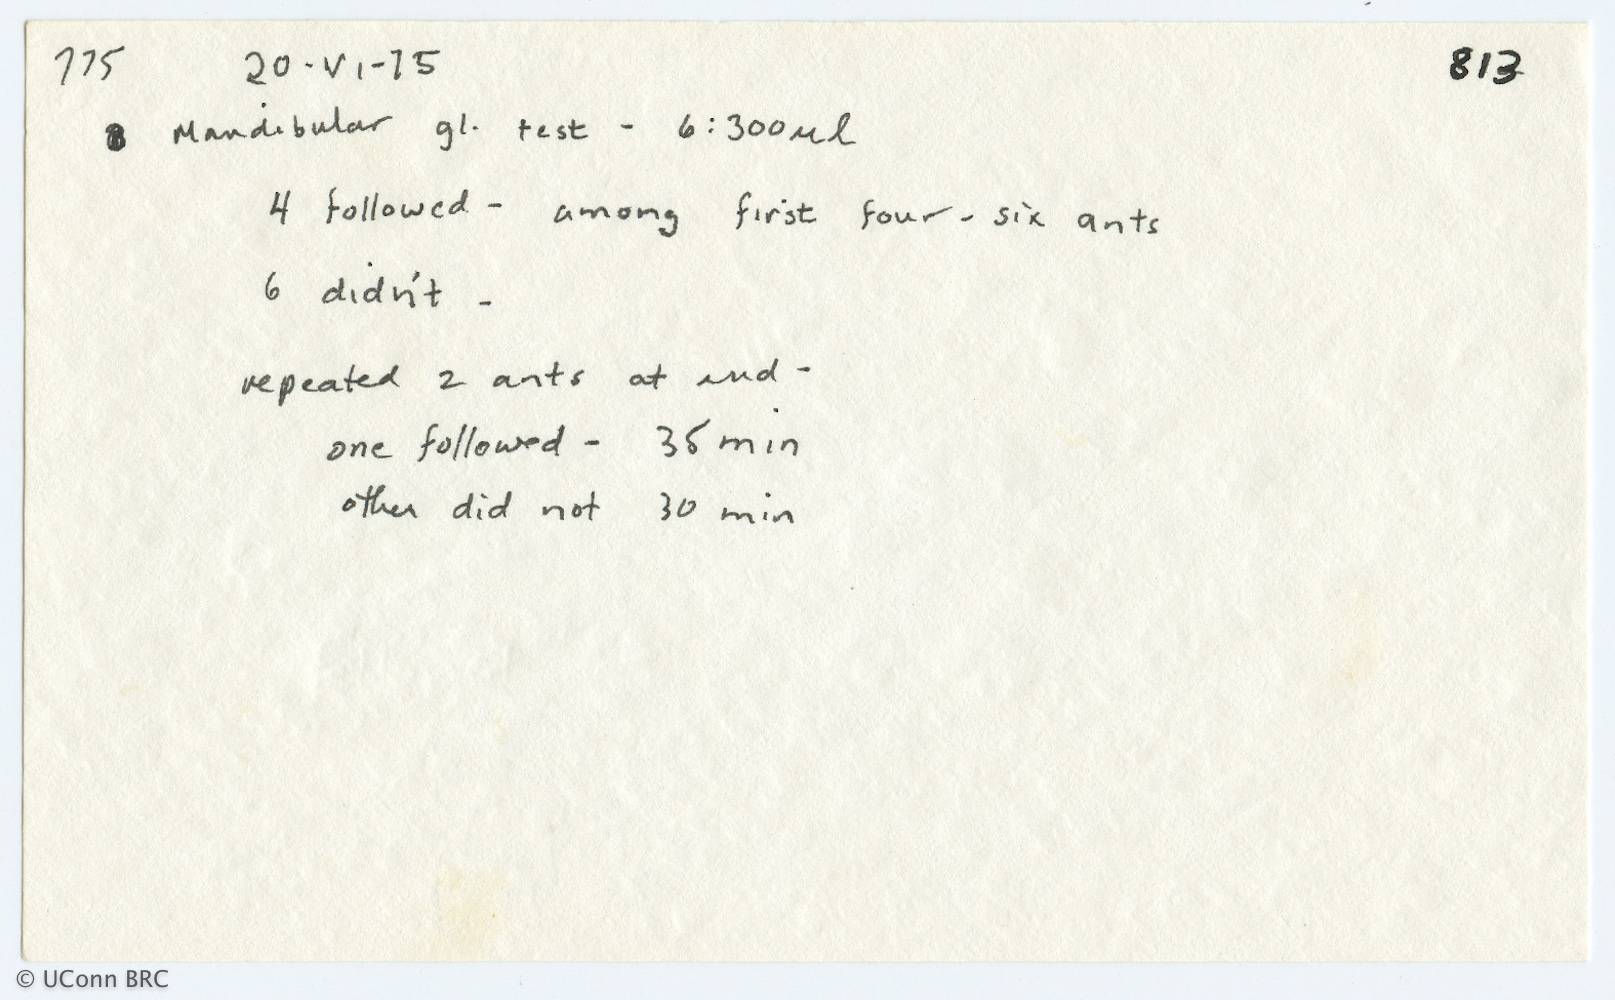 775 20-VI-75 813
Mandibular gl. test - 6:300µl
4 followed - among first four-six ants
6 didn't -
repeated 2 ants at end -
one followed - 35 min
other did not 30 min
© UConn BRC